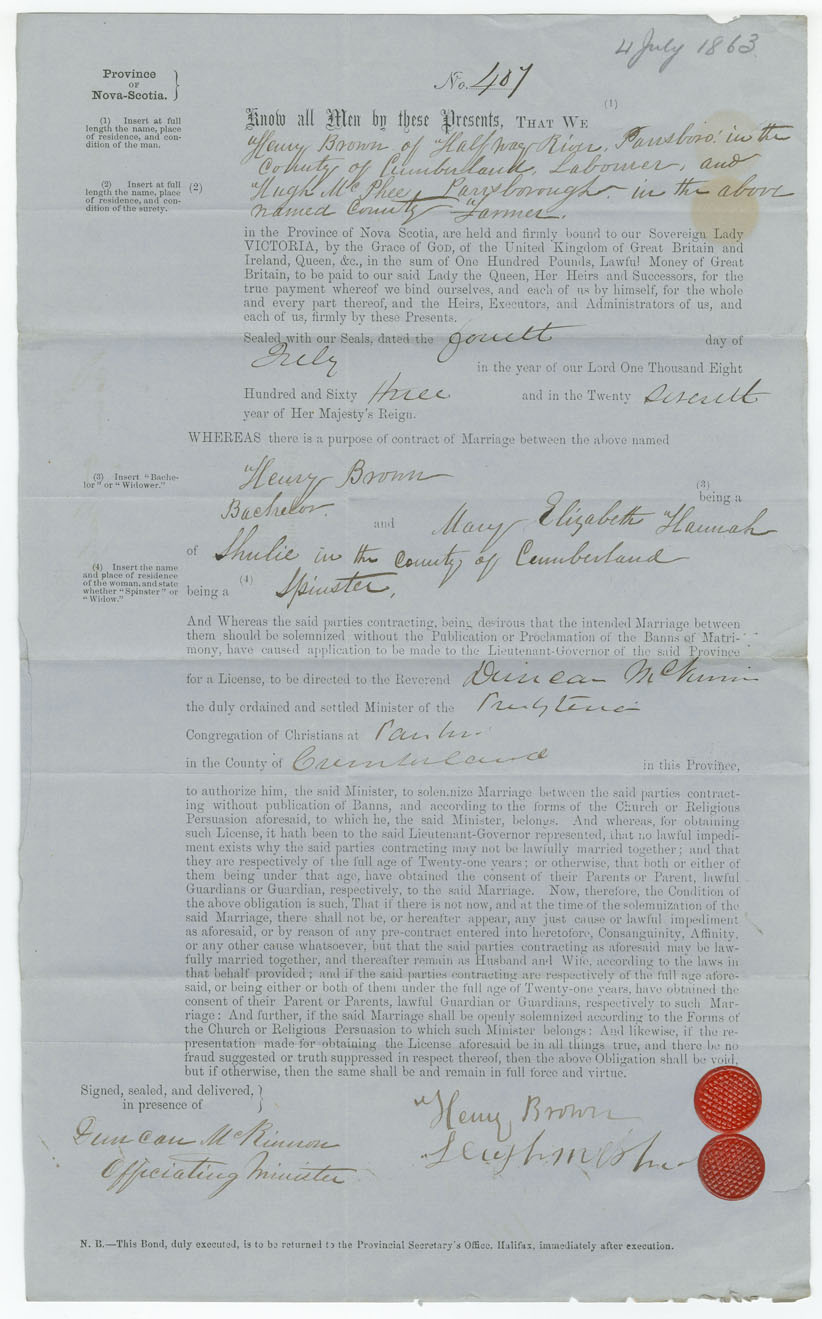 4 July 1863
Province
OF
Nova-Scotia. }
No. 407
(1) Insert at full
length the name, place
of residence, and con-
dition of the man.
Know all Men by these Presents, THAT WE (1)
Henry Brown of Halfway River, Parrsboro' in the
County of Cumberland, Labourer, and
(2) Insert at full
length the name, place
of residence, and con-
dition of the surety.
(2) Hugh McPhee, Parrsborough in the above
named County Farmer.
in the Province of Nova Scotia, are held and firmly bound to our Sovereign Lady
VICTORIA, by the Grace of GOD, of the United Kingdom of Great Britain and
Ireland, Queen, &c., in the sum of One Hundred Pounds, Lawful Money of Great
Britain, to be paid to our said Lady the Queen, Her Heirs and Successors, for the
true payment whereof we bind ourselves, and each of us by himself, for the whole
and every part thereof, and the Heirs, Executors, and Administrators of us, and
each of us, firmly by these Presents.
Sealed with our Seals, dated the fourth day of
July in the year of our Lord One Thousand Eight
Hundred and Sixty three and in the Twenty seventh
year of Her Majesty's Reign.
WHEREAS there is a purpose of contract of Marriage between the above named
(3) Insert "Bache-
lor" or "Widower."
Henry Brown (3) being a
Bachelor. and Mary Elizabeth Hannah
of Shulie in the County of Cumberland
(4) Insert the name
and place of residence
of the woman, and state
whether "Spinster" or
"Widow."
being a (4) Spinster,
And Whereas the said parties contracting, being desirous that the intended Marriage between
them should be solemnized without the Publication or Proclamation of the Banns of Matri-
mony, have caused application to be made to the Lieutenant-Governor of the said Province
for a License, to be directed to the Reverend Duncan McKinnon
the duly ordained and settled Minister of the Presbyterian
Congregation of Christians at
in the County of Cumberland in this Province,
to authorize him, the said Minister, to solemnize Marriage between the said parties contract-
ing without publication of Banns, and according to the forms of the Church or Religious
Persuasion aforesaid, to which he, the said Minister, belongs. And whereas, for obtaining
such License, it hath been to the said Lieutenant-Governor represented, that no lawful impedi-
ment exists why the said parties contracting may not be lawfully married together; and that
they are respectively of the full age of Twenty-one years; or otherwise, that both or either of
them being under that age, have obtained the consent of their Parents or Parent, lawful
Guardians or Guardian, respectively, to the said Marriage. Now, therefore, the Condition of
the above obligation is such, That if there is not now, and at the time of the solemnization of the
said Marriage, there shall not be, or hereafter appear, any just cause or lawful impediment
as aforesaid, or by reason of any pre-contract entered into heretofore, Consanguinity, Affinity,
or any other cause whatsoever, but that the said parties contracting as aforesaid may be law-
fully married together, and thereafter remain as Husband and Wife, according to the laws in
that behalf provided; and if the said parties contracting are respectively of the full age afore-
said, or being either or both of them under the full age of Twenty-one years, have obtained the
consent of their Parent or Parents, lawful Guardian or Guardians, respectively to such Mar-
riage: And further, if the said Marriage shall be openly solemnized according to the Forms of
the Church or Religious Persuasion to which such Minister belongs: And likewise, if the re-
presentation made for obtaining the License aforesaid be in all things true, and there be no
fraud suggested or truth suppressed in respect thereof, then the above Obligation shall be void,
but if otherwise, then the same shall be and remain in full force and virtue.
Signed, sealed, and delivered, }
in presence of }
Henry Brown
Duncan McKinnon
Hugh McPhee
Officiating Minister
N. B.—This Bond, duly executed, is to be returned to the Provincial Secretary's Office, Halifax, immediately after execution.